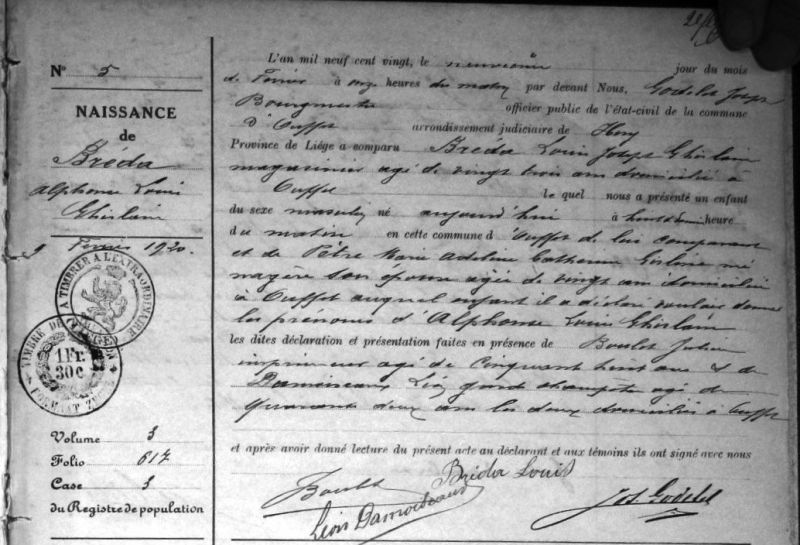 N° 5
NAISSANCE
de
Bréda
Alphonse Louis
Ghislain
9 Février 1920.
A TIMBRER A L'EXTRAORDINAIRE
TIMBRE DE
1 Fr.
30 c
FORMAT
Volume 3
Folio 617
Case 3
du Registre de population
L'an mil neuf cent vingt, le neuvième jour du mois
de Février à onze heures du matin par devant Nous, Godelet Joseph
Bourgmestre officier public de l'état-civil de la commune
d'Ouffet arrondissement judiciaire de Huy
Province de Liége a comparu Bréda Louis Joseph Ghislain
magasinier agé de vingt trois ans domicilié à
Ouffet le quel nous a présenté un enfant
du sexe masculin né aujourd'hui à huit heure
du matin en cette commune d'Ouffet de lui comparant
et de Pêtre Marie Adeline Catherine Ghislaine mé
nagère son épouse agée de vingt ans domiciliée
à Ouffet auquel enfant il a déclaré vouloir donner
les prénoms d'Alphonse Louis Ghislain
les dites déclaration et présentation faites en présence de Boulet Julien
imprimeur agé de cinquant huit ans & de
Damoiseaux Léon garde champêtre agé de
quarante deux ans les deux domiciliés à Ouffet
et après avoir donné lecture du présent acte au déclarant et aux témoins ils ont signé avec nous
Boulet
Bréda Louis
Léon Damoiseaux
Jos Godelet